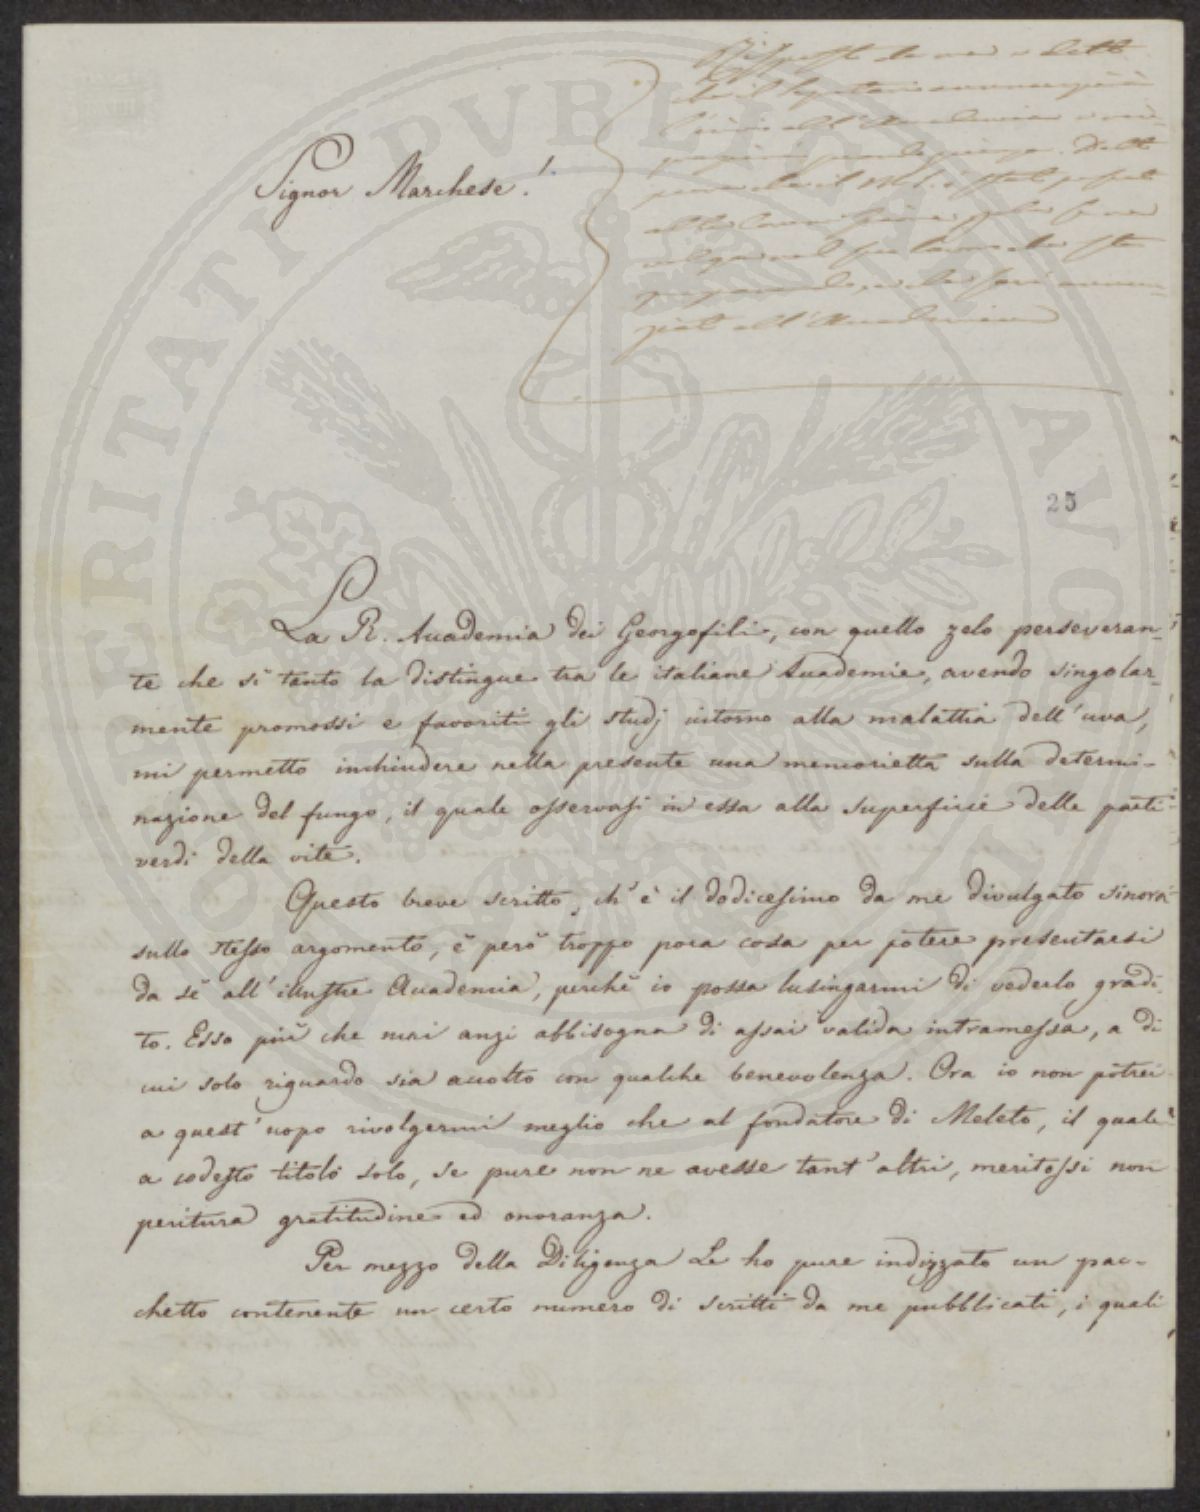 Signor Marchese!
Risposto da me e detto
che il Segretario
l'invio all'Accademia
25
La R. Accademia dei Georgofili, con quello zelo perseveran-
te che sì tanto la distingue tra le italiane Accademie, avendo singolar-
mente promossi e favoriti gli studj intorno alla malattia dell'uva,
mi permetto inchiudere nella presente una memorietta sulla determi-
nazione del fungo, il quale osservasi in essa alla superficie delle parti
verdi della vite.
Questo breve scritto, ch'è il dodicesimo da me divulgato sinora
sullo stesso argomento, è però troppo poca cosa per potere presentarsi
da sè all'illustre Accademia, perchè io possa lusingarmi di vederlo gradi-
to. Esso più che mai anzi abbisogna di assai valida intramessa, a di
cui solo riguardo sia accolto con qualche benevolenza. Ora io non potrei
a quest'uopo rivolgermi meglio che al fondatore di Meleto, il quale
a codesto titolo solo, se pure non ne avesse tant'altri, meritossi non
peritura gratitudine ed onoranza.
Per mezzo della Diligenza Le ho pure indizzato un pac-
chetto contenente un certo numero di scritti da me pubblicati, i quali